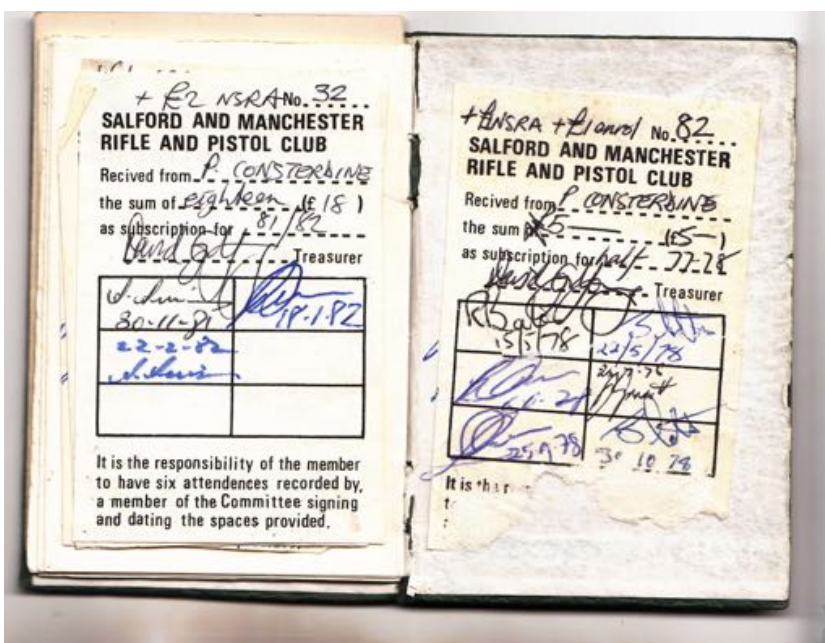 + £2 NSRA No. 32
SALFORD AND MANCHESTER
RIFLE AND PISTOL CLUB
Recived from P. CONSTERDINE
the sum of eighteen (£ 18 )
as subscription for 81/82
Treasurer
30-11-81
18.1.82
22-2-82
It is the responsibility of the member
to have six attendences recorded by,
a member of the Committee signing
and dating the spaces provided.
+ £1 NSRA + £1 enrol No. 82
SALFORD AND MANCHESTER
RIFLE AND PISTOL CLUB
Recived from P CONSTERDINE
the sum of £5 (£5—)
as subscription for half 77-78
Treasurer
15/5/78
22/5/78
25.9.78
30 10 78
It is the r